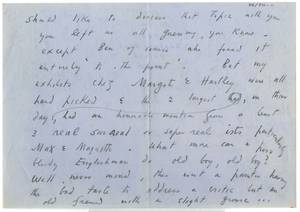 should like to discuss that topic with you
you kept us all guessing, you know –
except Ben of course who found it
entirely "to the point". But my
exhibits chez Margot & Hartley were all
hand picked & the 2 largest had, in three
days, had an honourable mention from at least
3 real surreal or super real ists particularly
Max & Magritte. What more can a poor
bloody Englishman do old boy, old boy?
Well, never mind, this want a painter having
the bad taste to address a critic but an
old friend with a slight grouse ...